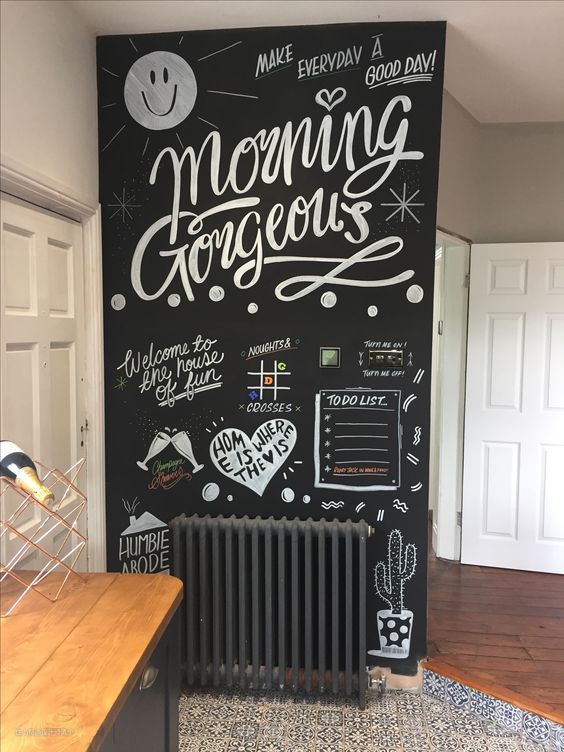 MAKE EVERYDAY A
GOOD DAY!
Morning
Gorgeous
Welcome to
the house
of fun
NOUGHTS &
D
CROSSES
TURN ME ON!
TURN ME OFF!
TO DO LIST...
Champagne
Showers
HOM
E IS WHERE
THE WIS
HUMBLE
ABODE